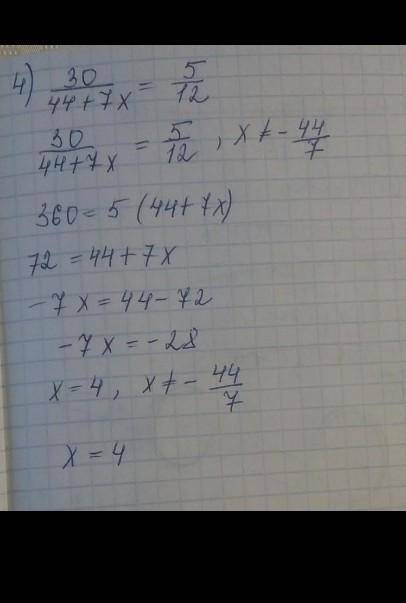 4) 30/(44+7x) = 5/12
30/(44+7x) = 5/12 , x ≠ - 44/7
360 = 5 (44+7x)
72 = 44+7x
-7x = 44-72
-7x = -28
x = 4 , x ≠ - 44/7
x = 4